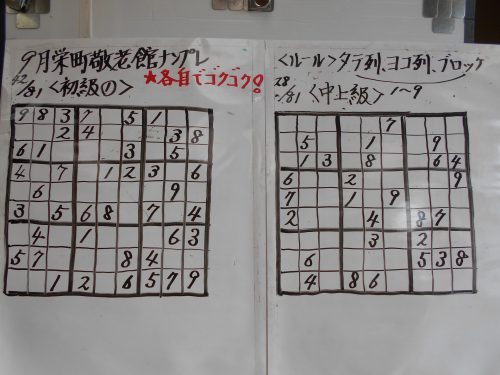 9月栄町敬老館ナンプレ
42/81 <初級の>
★各自でゴクゴク!
9 8 3 7 5 1
2 4 3 8
6 1 3 5
4 7 1 2 3 6
6 9
3 5 6 8 7 4
4 1 6 3
5 7 8 4
1 2 6 5 7 9
<ルール>タテ列、ヨコ列、ブロック
28/81 <中上級> 1〜9
7
5 1 9
1 3 8 6 4
6 2 9
7 1 9
2 4 8 7
3 2
6 5 3 8
4 8 6